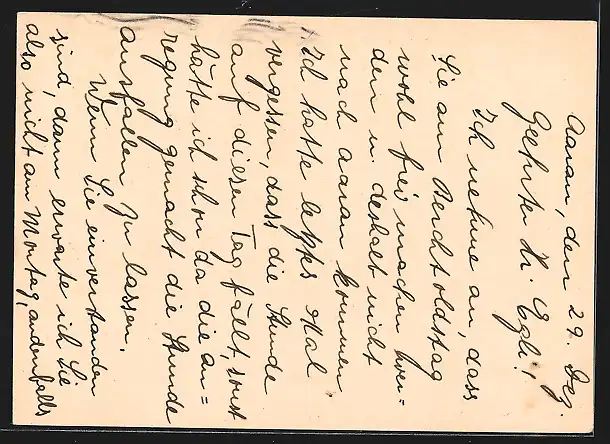 Aarau, den 29. Dez.
Geehrter Hr. Egli!
Ich nehme an, dass
Sie am Berchtoldstag
wohl frei machen wer-
den u. deshalb nicht
nach Aarau kommen
Ich hatte letztes Mal
vergessen, dass die Stunde
auf diesen Tag fällt, sonst
hätte ich schon da die an=
regung gemacht die Stunde
ausfallen zu lassen.
Wenn Sie einverstanden
sind, dann erwarte ich Sie
also nicht am Montag, andenfalls